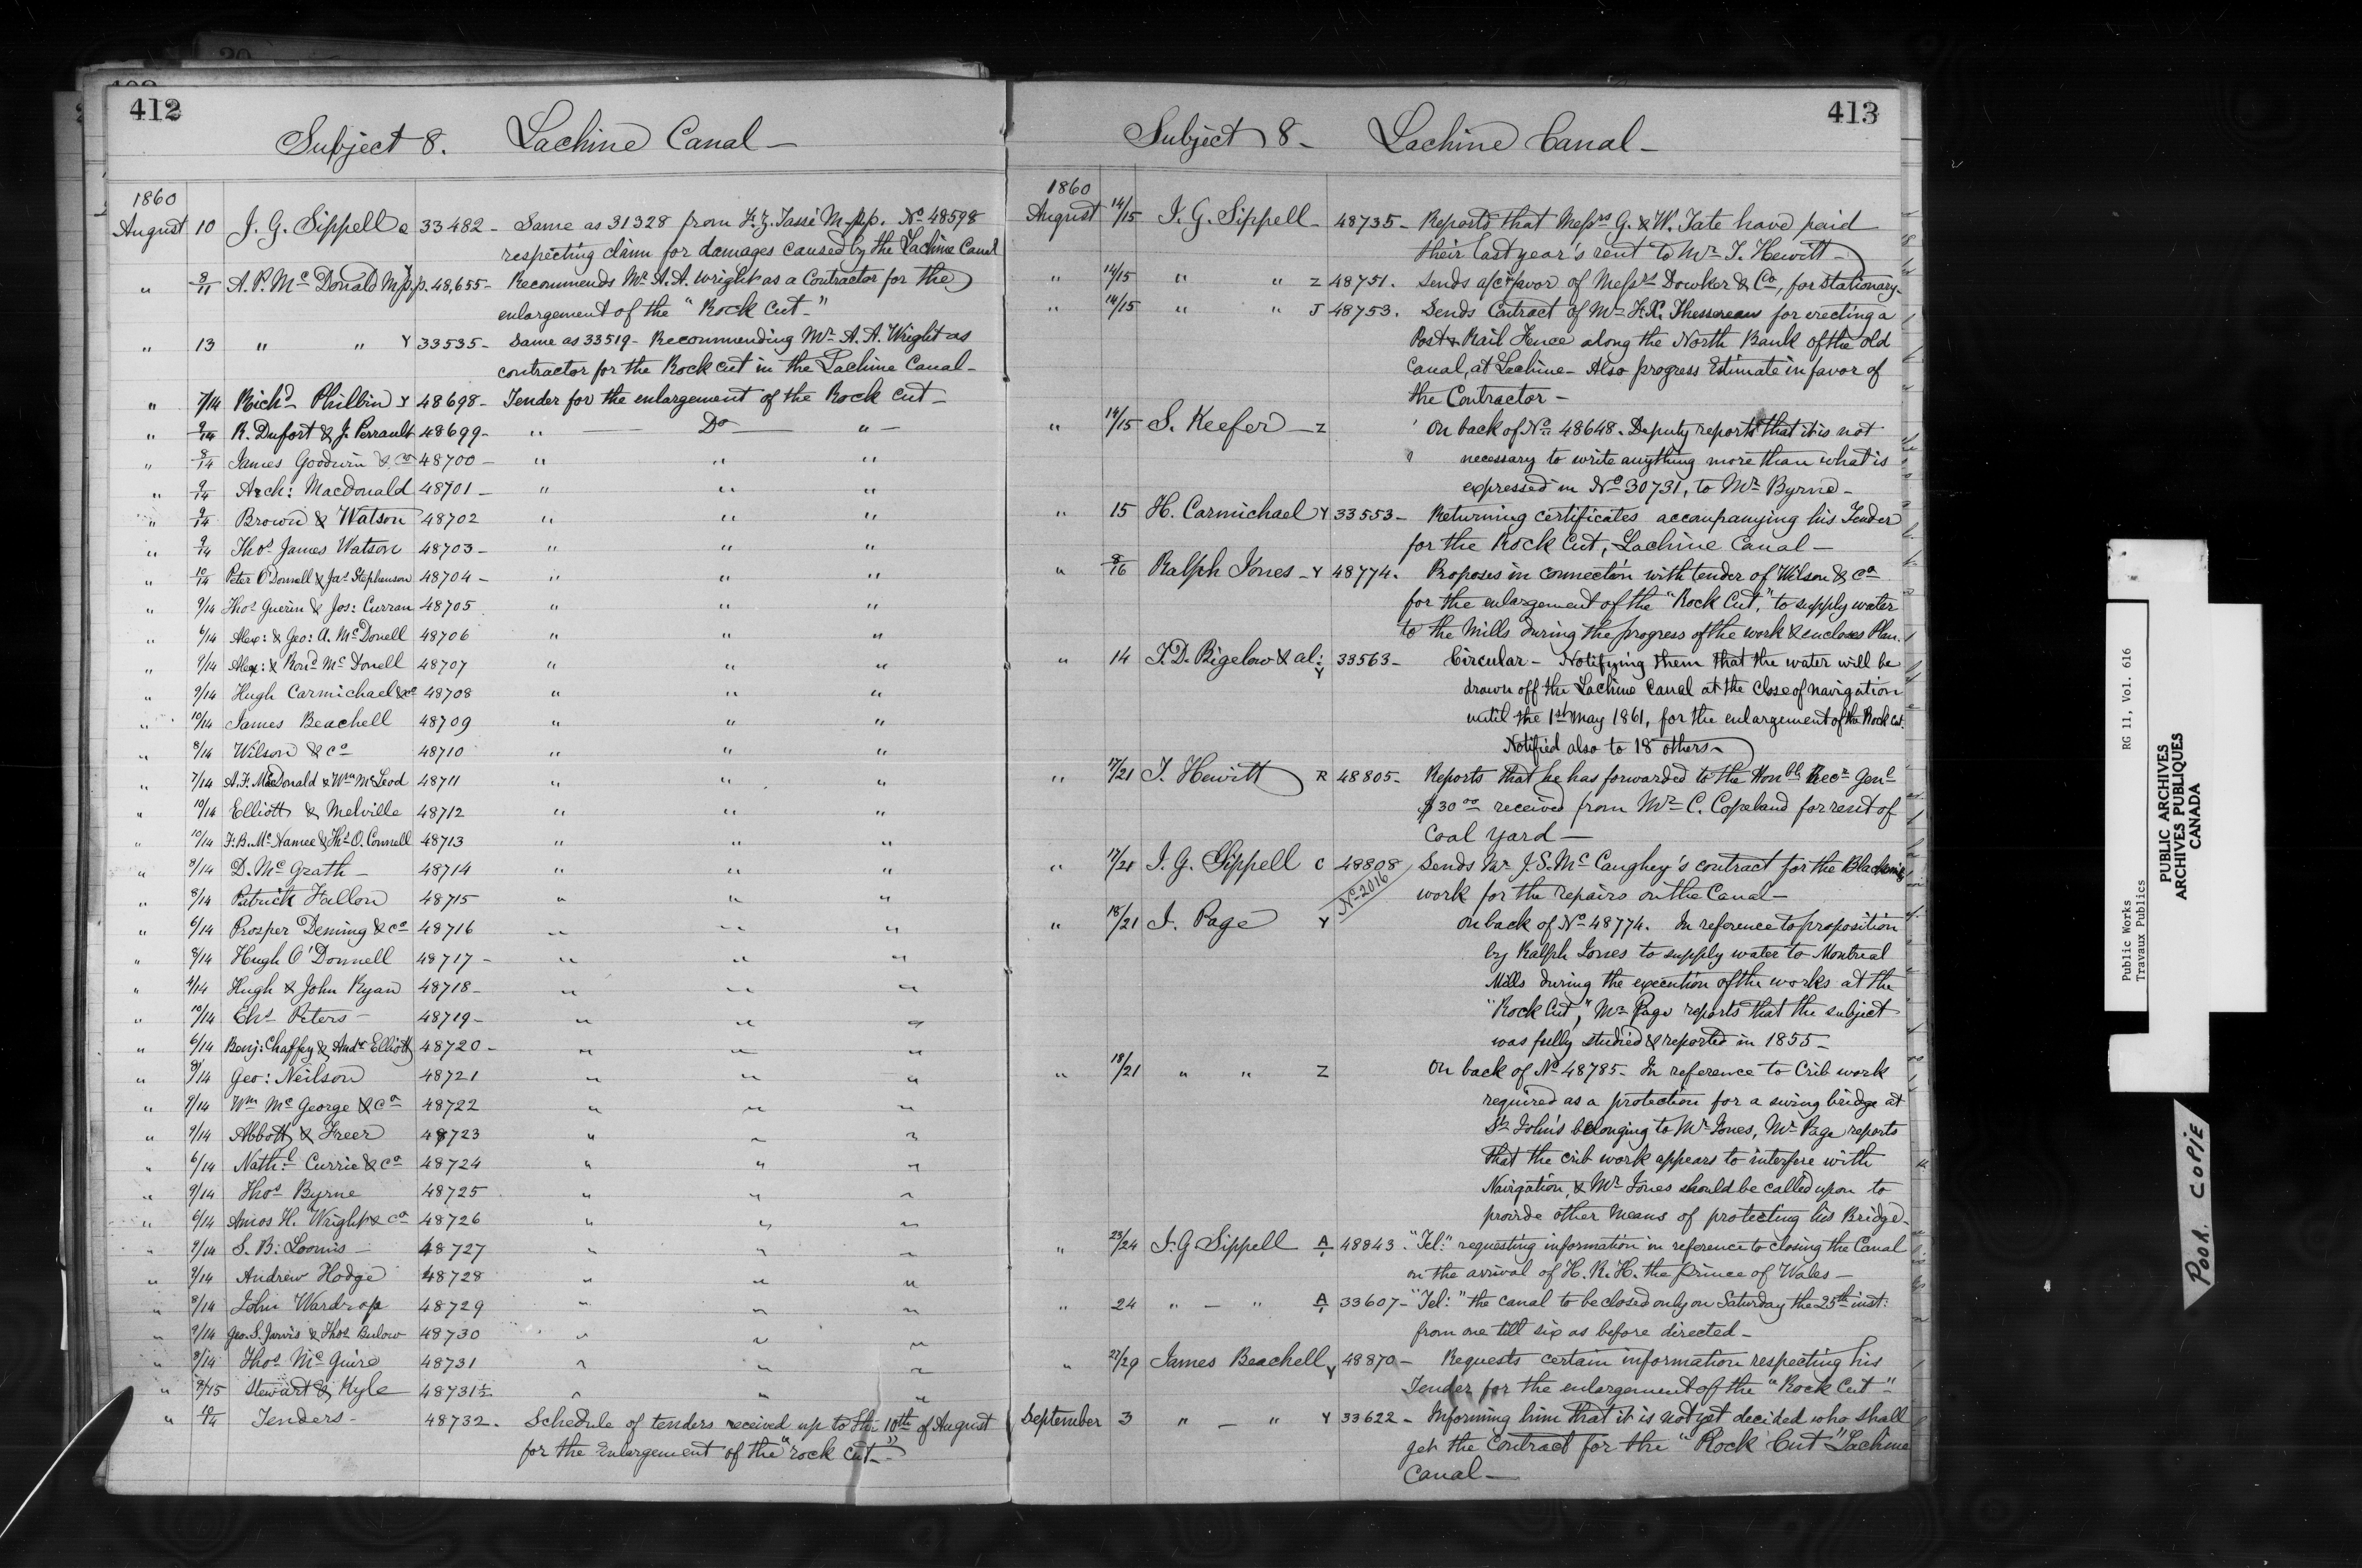 412
Subject 8. Lachine Canal —
1860
August 10 J. G. Sippell 33482 - Same as 31328 from F. Z. Tassé M.p.p. No 48598
respecting claim for damages caused by the Lachine Canal
" 8/11 A. P. McDonald M.p.p. Y 48,655 - Recommends Mr A. A. Wright as a Contractor for the
enlargement of the "Rock Cut"
" 13 " " Y 33535 - Same as 33519 - Recommending Mr A. A. Wright as
contractor for the Rock cut in the Lachine Canal -
" 7/14 Richd Philbin Y 48698 - Tender for the enlargement of the Rock cut -
" 9/14 R. Dufort & J. Perrault 48699 - " — Do — " —
" 8/14 James Goodwin & Co 48700 - " " "
" 9/14 Arch: Macdonald 48701 - " " "
" 9/14 Brown & Watson 48702 " " "
" 9/14 Thos James Watson 48703 - " " "
" 10/14 Peter O'Donnell & Jas Stephenson 48704 - " " "
" 9/14 Thos Guerin & Jos: Curran 48705 " " "
" 6/14 Alex: & Geo: A. McDonell 48706 " " "
" 9/14 Alex: & Rond McDonell 48707 " " "
" 9/14 Hugh Carmichael & Co 48708 " " "
" 10/14 James Beachell 48709 " " "
" 8/14 Wilson & Co 48710 " " "
" 7/14 A. F. McDonald & Wm McLeod 48711 " " "
" 10/14 Elliott & Melville 48712 " " "
" 10/14 F. B. McNamee & Ths O. Connell 48713 " " "
" 9/14 D. McGrath - 48714 " " "
" 8/14 Patrick Fallon 48715 " " "
" 6/14 Prosper Deming & Co 48716 " " "
" 8/14 Hugh O'Donnell 48717 - " " "
" 4/14 Hugh & John Ryan 48718 - " " "
" 10/14 Chs Peters - 48719 - " " "
" 6/14 Benj: Chaffey & Andw Elliott 48720 - " " "
" 9/14 Geo: Neilson 48721 " " "
" 9/14 Wm McGeorge & Co 48722 " " "
" 9/14 Abbott & Freer 48723 " " "
" 6/14 Nathl Currie & Co 48724 " " "
" 9/14 Thos Byrne 48725 " " "
" 6/14 Amos H. Wright & Co 48726 " " "
" 9/14 S. B. Loomis - 48727 " " "
" 9/14 Andrew Hodge 48728 " " "
" 8/14 John Wardrop 48729 " " "
" 9/14 Geo. S. Jarvis & Thos Bulow 48730 " " "
" 8/14 Thos McGuire 48731 " " "
" 9/15 Stewart & Kyle 48731½ " " "
" 10/14 Tenders - 48732. Schedule of tenders received up to the 10th of August
for the Enlargement of the "rock cut" -
413
Subject 8 - Lachine Canal -
1860
August 14/15 J. G. Sippell - 48735 - Reports that Messrs G. & W. Tate have paid
their last year's rent to Mr J. Hewitt -
" 14/15 " " Z 48751. Sends a/c favor of Messrs Dowker & Co, for Stationary -
" 14/15 " " J 48753. Sends Contract of Mr F. X. Thessereau for erecting a
Post & Rail Fence along the North Bank of the old
Canal, at Lachine - Also progress Estimate in favor of
the Contractor -
" 14/15 S. Keefer - Z On back of No 48648. Deputy reports that it is not
necessary to write anything more than what is
expressed in No 30731, to Mr Byrne -
" 15 H. Carmichael Y 33553 - Returning certificates accompanying his Tender
for the Rock Cut, Lachine Canal -
" 8/16 Ralph Jones - Y 48774. Proposes in connection with tender of Wilson & Co
for the enlargement of the "Rock Cut," to supply water
to the Mills during the progress of the work & encloses Plan.
" 14 J. D. Bigelow & al: Y 33563 - Circular - Notifying them that the water will be
drawn off the Lachine Canal at the close of navigation
until the 1st May 1861, for the enlargement of the Rock Cut.
Notified also to 18 others -
" 17/21 J. Hewitt R 48805 - Reports that he has forwarded to the Honble Recr Genl
$30 00 received from Mr C. Copeland for rent of
Coal Yard -
" 17/21 J. G. Sippell C 48808 Sends Mr J. S. McCaughey's contract for the Blacksmith
No 2016 work for the repairs on the Canal -
" 18/21 J. Page Y On back of No 48774. In reference to proposition
by Ralph Jones to supply water to Montreal
Mills during the execution of the works at the
"Rock Cut," Mr Page reports that the subject
was fully studied & reported in 1855 -
" 18/21 " " Z On back of No 48785 - In reference to Crib work
required as a protection for a swing bridge at
St John's belonging to Mr Jones, Mr Page reports
that the crib work appears to interfere with
Navigation, & Mr Jones should be called upon to
provide other means of protecting his Bridge -
" 23/24 J. G Sippell A 48843. "Tel:" requesting information in reference to closing the Canal
on the arrival of H. R. H. the Prince of Wales -
" 24 " - " A 33607 - "Tel:" the canal to be closed only on Saturday the 25th inst:
from one till six as before directed -
" 27/29 James Beachell Y 48870 - Requests certain information respecting his
Tender for the enlargement of the "Rock Cut" -
September 3 " - " Y 33622 - Informing him that it is not yet decided who shall
get the Contract for the "Rock Cut" Lachine
Canal -
Public Works RG 11, Vol. 616
Travaux Publics
PUBLIC ARCHIVES
ARCHIVES PUBLIQUES
CANADA
POOR COPIE